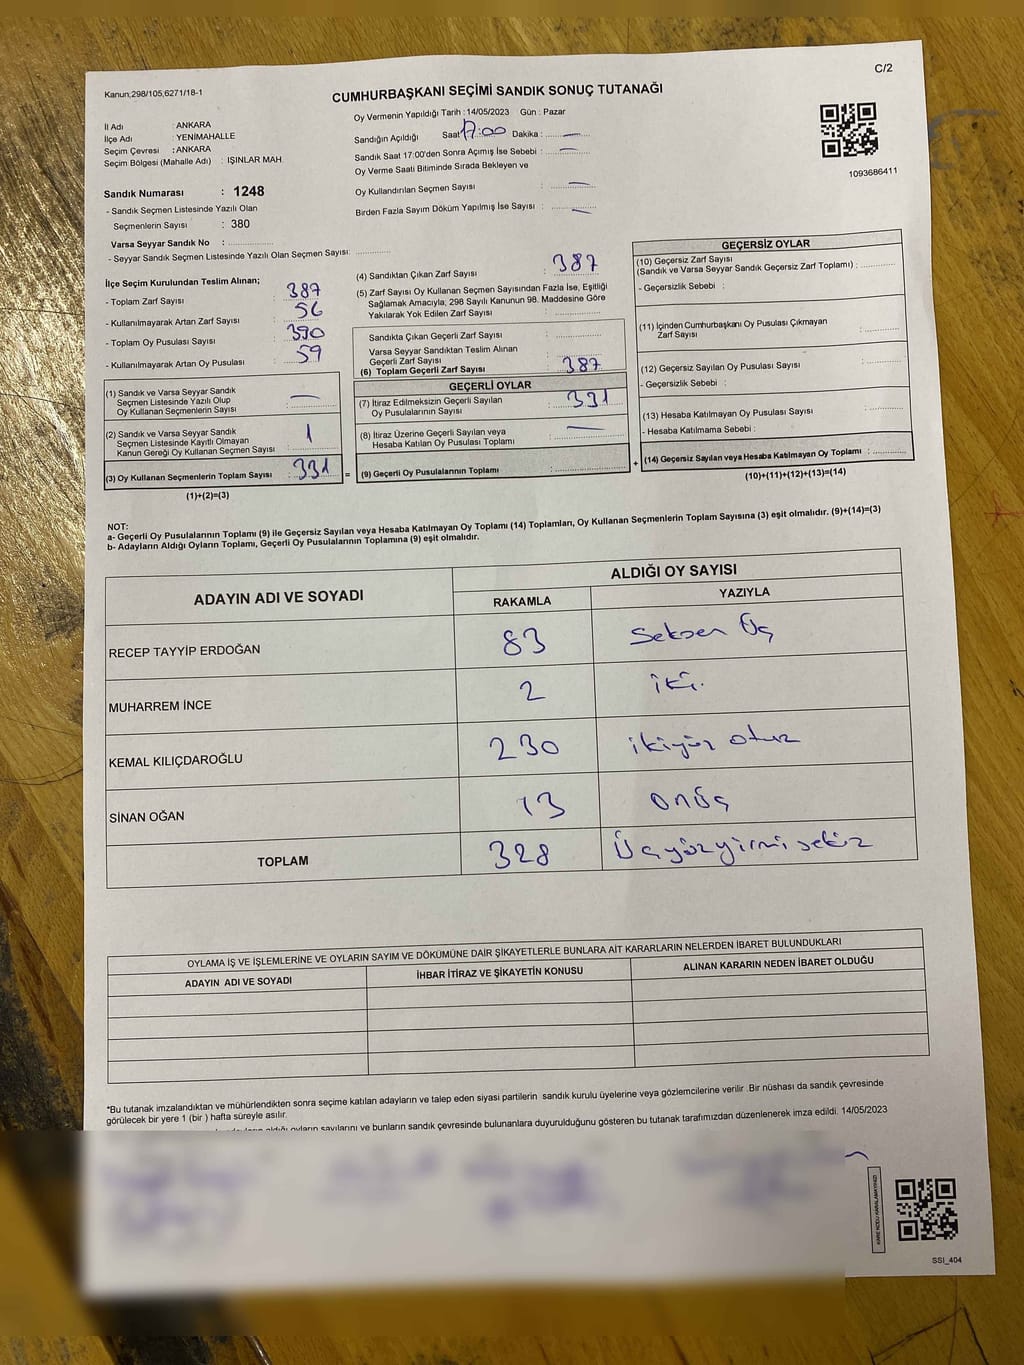 C/2
Kanun,298/105,6271/18-1
CUMHURBAŞKANI SEÇİMİ SANDIK SONUÇ TUTANAĞI
İl Adı : ANKARA
İlçe Adı : YENİMAHALLE
Seçim Çevresi : ANKARA
Seçim Bölgesi (Mahalle Adı) : IŞINLAR MAH
Sandık Numarası : 1248
- Sandık Seçmen Listesinde Yazılı Olan
Seçmenlerin Sayısı : 380
Varsa Seyyar Sandık No :
- Seyyar Sandık Seçmen Listesinde Yazılı Olan Seçmen Sayısı:
Oy Vermenin Yapıldığı Tarih : 14/05/2023 Gün : Pazar
Sandığın Açıldığı Saat 17:00 Dakika : —
Sandık Saat 17:00'den Sonra Açımış İse Sebebi : —
Oy Verme Saati Bitiminde Sırada Bekleyen ve
Oy Kullandırılan Seçmen Sayısı : —
Birden Fazla Sayım Döküm Yapılmış İse Sayısı : —
1093686411
İlçe Seçim Kurulundan Teslim Alınan;
- Toplam Zarf Sayısı : 387
- Kullanılmayarak Artan Zarf Sayısı : 56
- Toplam Oy Pusulası Sayısı : 390
- Kullanılmayarak Artan Oy Pusulası : 59
(1) Sandık ve Varsa Seyyar Sandık
Seçmen Listesinde Yazılı Olup
Oy Kullanan Seçmenlerin Sayısı : —
(2) Sandık ve Varsa Seyyar Sandık
Seçmen Listesinde Kayıtlı Olmayan
Kanun Gereği Oy Kullanan Seçmen Sayısı : 1
(3) Oy Kullanan Seçmenlerin Toplam Sayısı : 331 =
(1)+(2)=(3)
(4) Sandıktan Çıkan Zarf Sayısı : 387
(5) Zarf Sayısı Oy Kullanan Seçmen Sayısından Fazla İse, Eşitliği
Sağlamak Amacıyla, 298 Sayılı Kanunun 98. Maddesine Göre
Yakılarak Yok Edilen Zarf Sayısı :
Sandıkta Çıkan Geçerli Zarf Sayısı :
Varsa Seyyar Sandıktan Teslim Alınan
Geçerli Zarf Sayısı :
(6) Toplam Geçerli Zarf Sayısı : 387
GEÇERLİ OYLAR
(7) İtiraz Edilmeksizin Geçerli Sayılan
Oy Pusulalarının Sayısı : 331
(8) İtiraz Üzerine Geçerli Sayılan veya
Hesaba Katılan Oy Pusulası Toplamı : —
(9) Geçerli Oy Pusulalarının Toplamı : +
GEÇERSİZ OYLAR
(10) Geçersiz Zarf Sayısı
(Sandık ve Varsa Seyyar Sandık Geçersiz Zarf Toplamı) :
- Geçersizlik Sebebi :
(11) İçinden Cumhurbaşkanı Oy Pusulası Çıkmayan
Zarf Sayısı :
(12) Geçersiz Sayılan Oy Pusulası Sayısı :
- Geçersizlik Sebebi :
(13) Hesaba Katılmayan Oy Pusulası Sayısı :
- Hesaba Katılmama Sebebi :
(14) Geçersiz Sayılan veya Hesaba Katılmayan Oy Toplamı :
(10)+(11)+(12)+(13)=(14)
NOT:
a- Geçerli Oy Pusulalarının Toplamı (9) ile Geçersiz Sayılan veya Hesaba Katılmayan Oy Toplamı (14) Toplamları, Oy Kullanan Seçmenlerin Toplam Sayısına (3) eşit olmalıdır. (9)+(14)=(3)
b- Adayların Aldığı Oyların Toplamı, Geçerli Oy Pusulalarının Toplamına (9) eşit olmalıdır.
ADAYIN ADI VE SOYADI ALDIĞI OY SAYISI
RAKAMLA YAZIYLA
RECEP TAYYİP ERDOĞAN 83 Seksen Üç
MUHARREM İNCE 2 iki.
KEMAL KILIÇDAROĞLU 230 ikiyüz otuz
SİNAN OĞAN 13 onÜç
TOPLAM 328 Üçyüzyirmi sekiz
OYLAMA İŞ VE İŞLEMLERİNE VE OYLARIN SAYIM VE DÖKÜMÜNE DAİR ŞİKAYETLERLE BUNLARA AİT KARARLARIN NELERDEN İBARET BULUNDUKLARI
ADAYIN ADI VE SOYADI İHBAR İTİRAZ VE ŞİKAYETİN KONUSU ALINAN KARARIN NEDEN İBARET OLDUĞU
*Bu tutanak imzalandıktan ve mühürlendikten sonra seçime katılan adayların ve talep eden siyasi partilerin sandık kurulu üyelerine veya gözlemcilerine verilir .Bir nüshası da sandık çevresinde
görülecek bir yere 1 (bir ) hafta süreyle asılır.
aldığı oyların sayılarını ve bunların sandık çevresinde bulunanlara duyurulduğunu gösteren bu tutanak tarafımızdan düzenlenerek imza edildi. 14/05/2023
KARE KODU KARALAMAYINIZ!
SSI_404